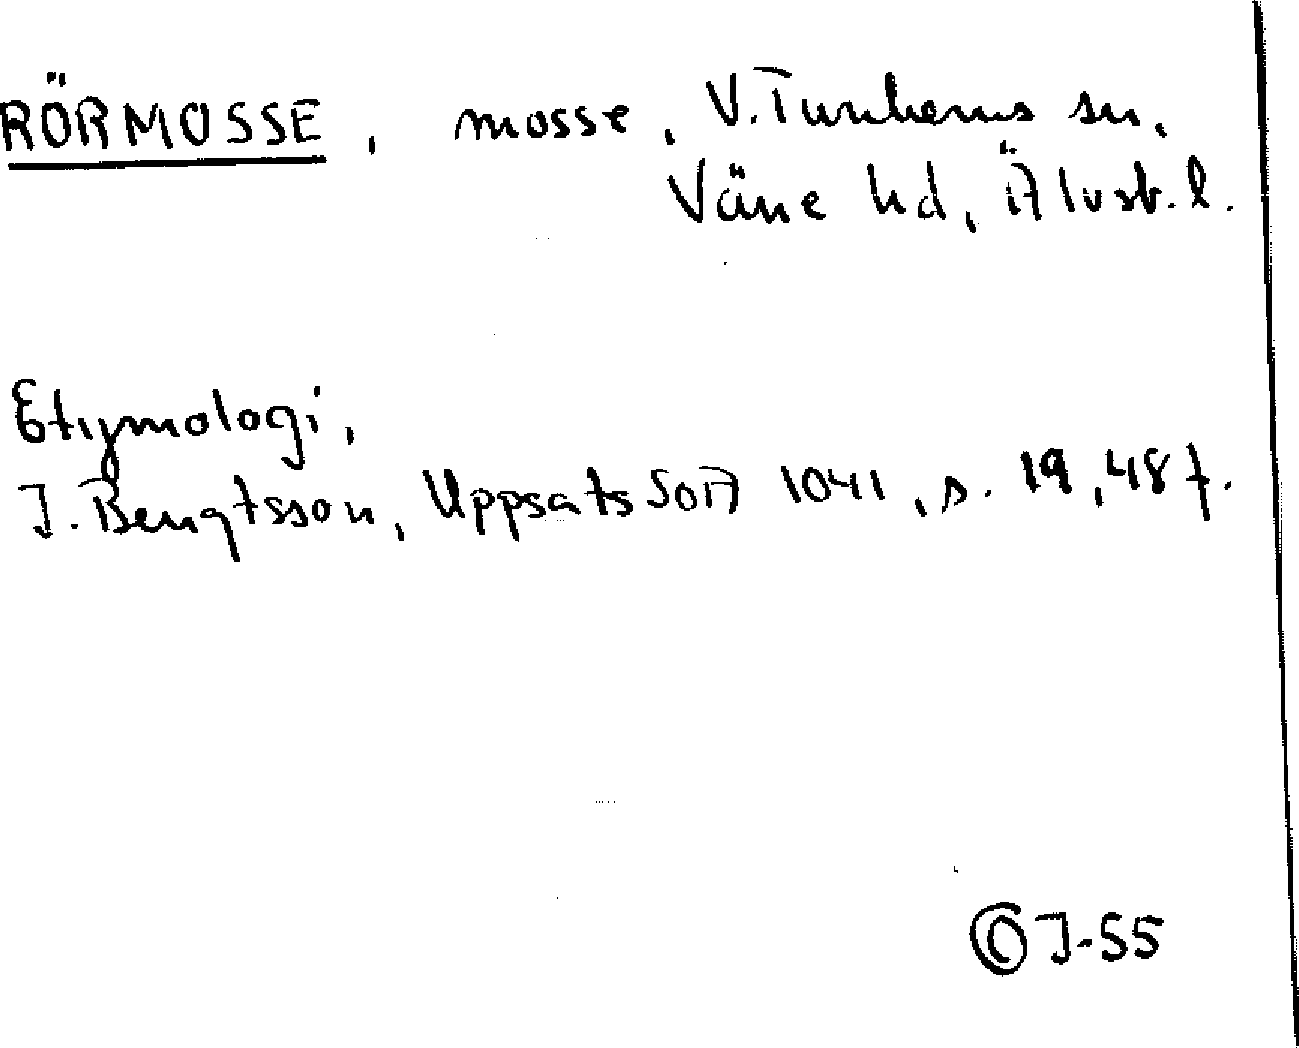 RÖRMOSSE, mosse, V. Tunhems sn,
Väne hd, Älvsb. l.
Etymologi,
J. Bengtsson, Uppsats SOA 1041, s. 19, 48 f.
© J-S5